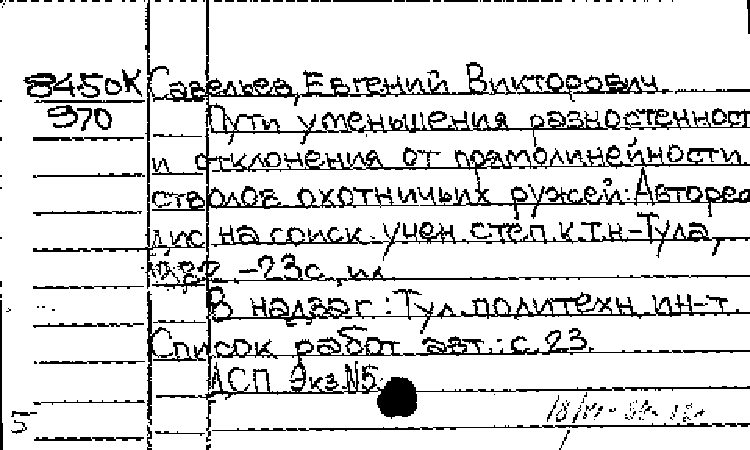 8450К Савельев, Евгений Викторович.
970 Пути уменьшения разностенност
и отклонения от прямолинейности
стволов охотничьих ружей: Авторе
дис на соиск. учен. степ. к.т.н.-Тула,
1982.-23с., ил.
В надзаг.: Тул. политехн. ин-т.
Список работ авт.: с. 23.
ДСП Экз.№5
5